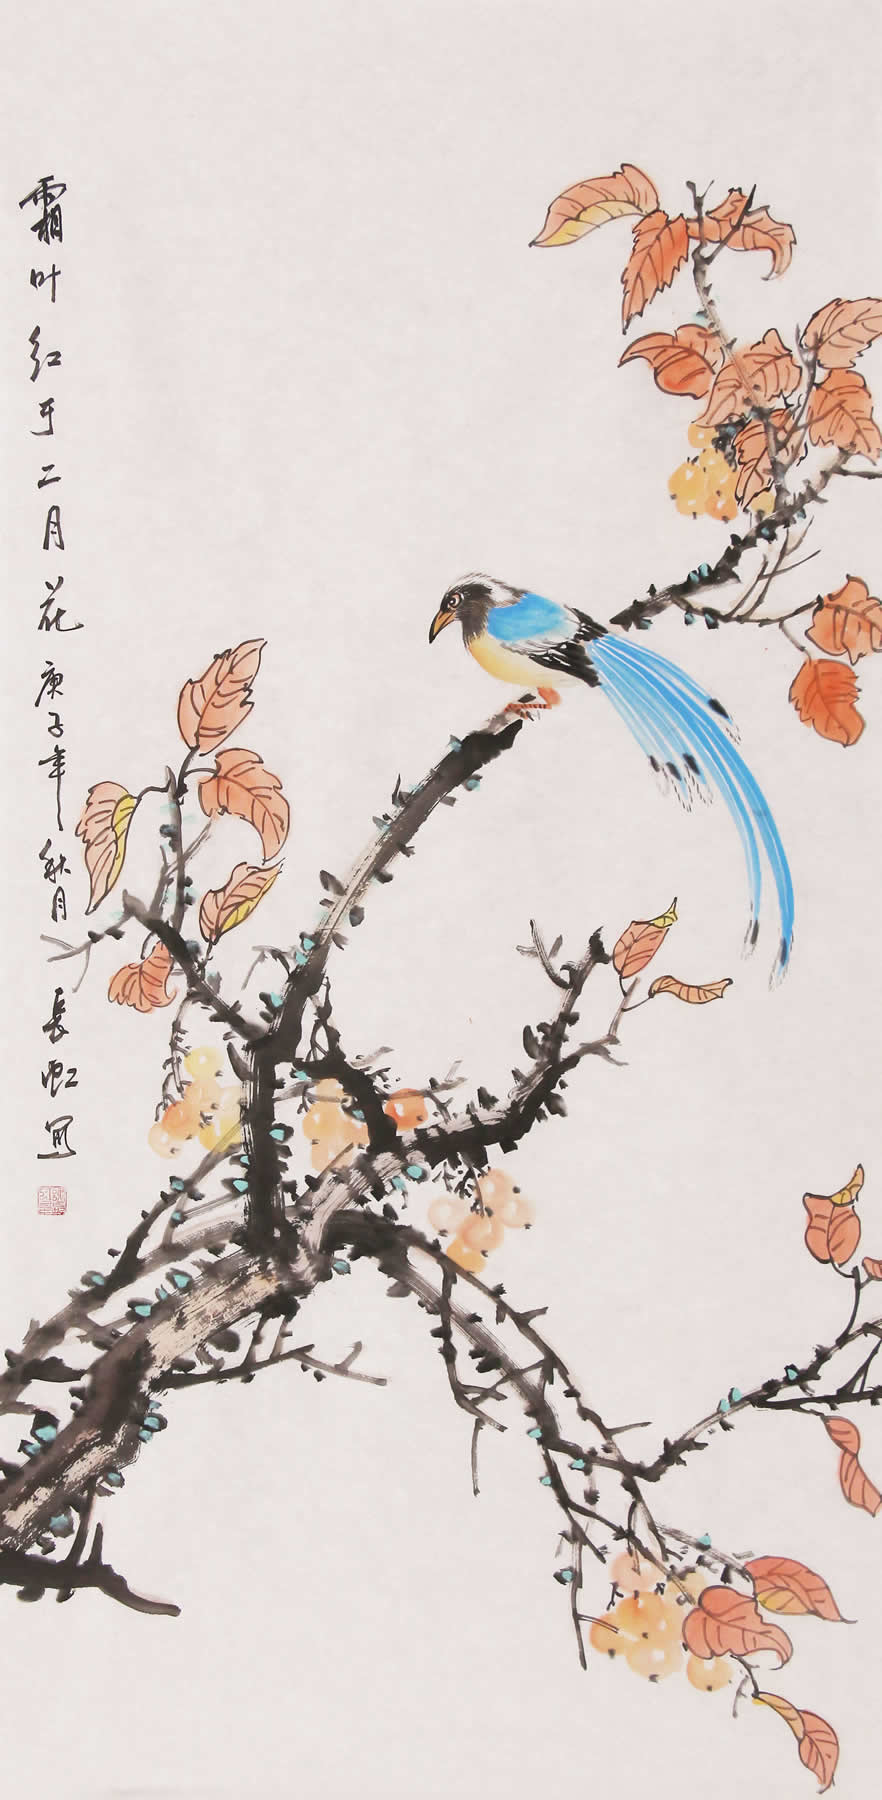 霜叶红于二月花庚子年秋月長虹写